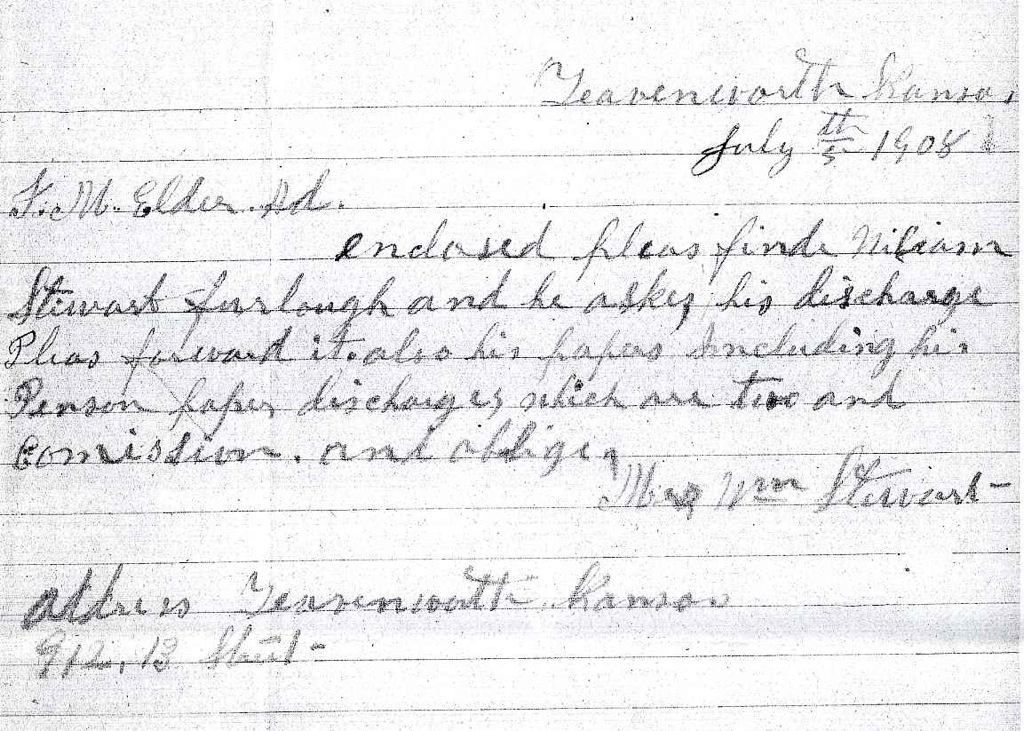 Leavenworth Kansas,
July 5th 1908
F. M. Elder. Ad.
enclosed pleas finde William
Stewart furlough and he askes his discharge
Pleas forward it. also his papas Including his
Penson papers discharges which are two and
Comission. and oblige,
Mrs Wm Stewart-
address Leavenworth Kansas
912, 13 Street-